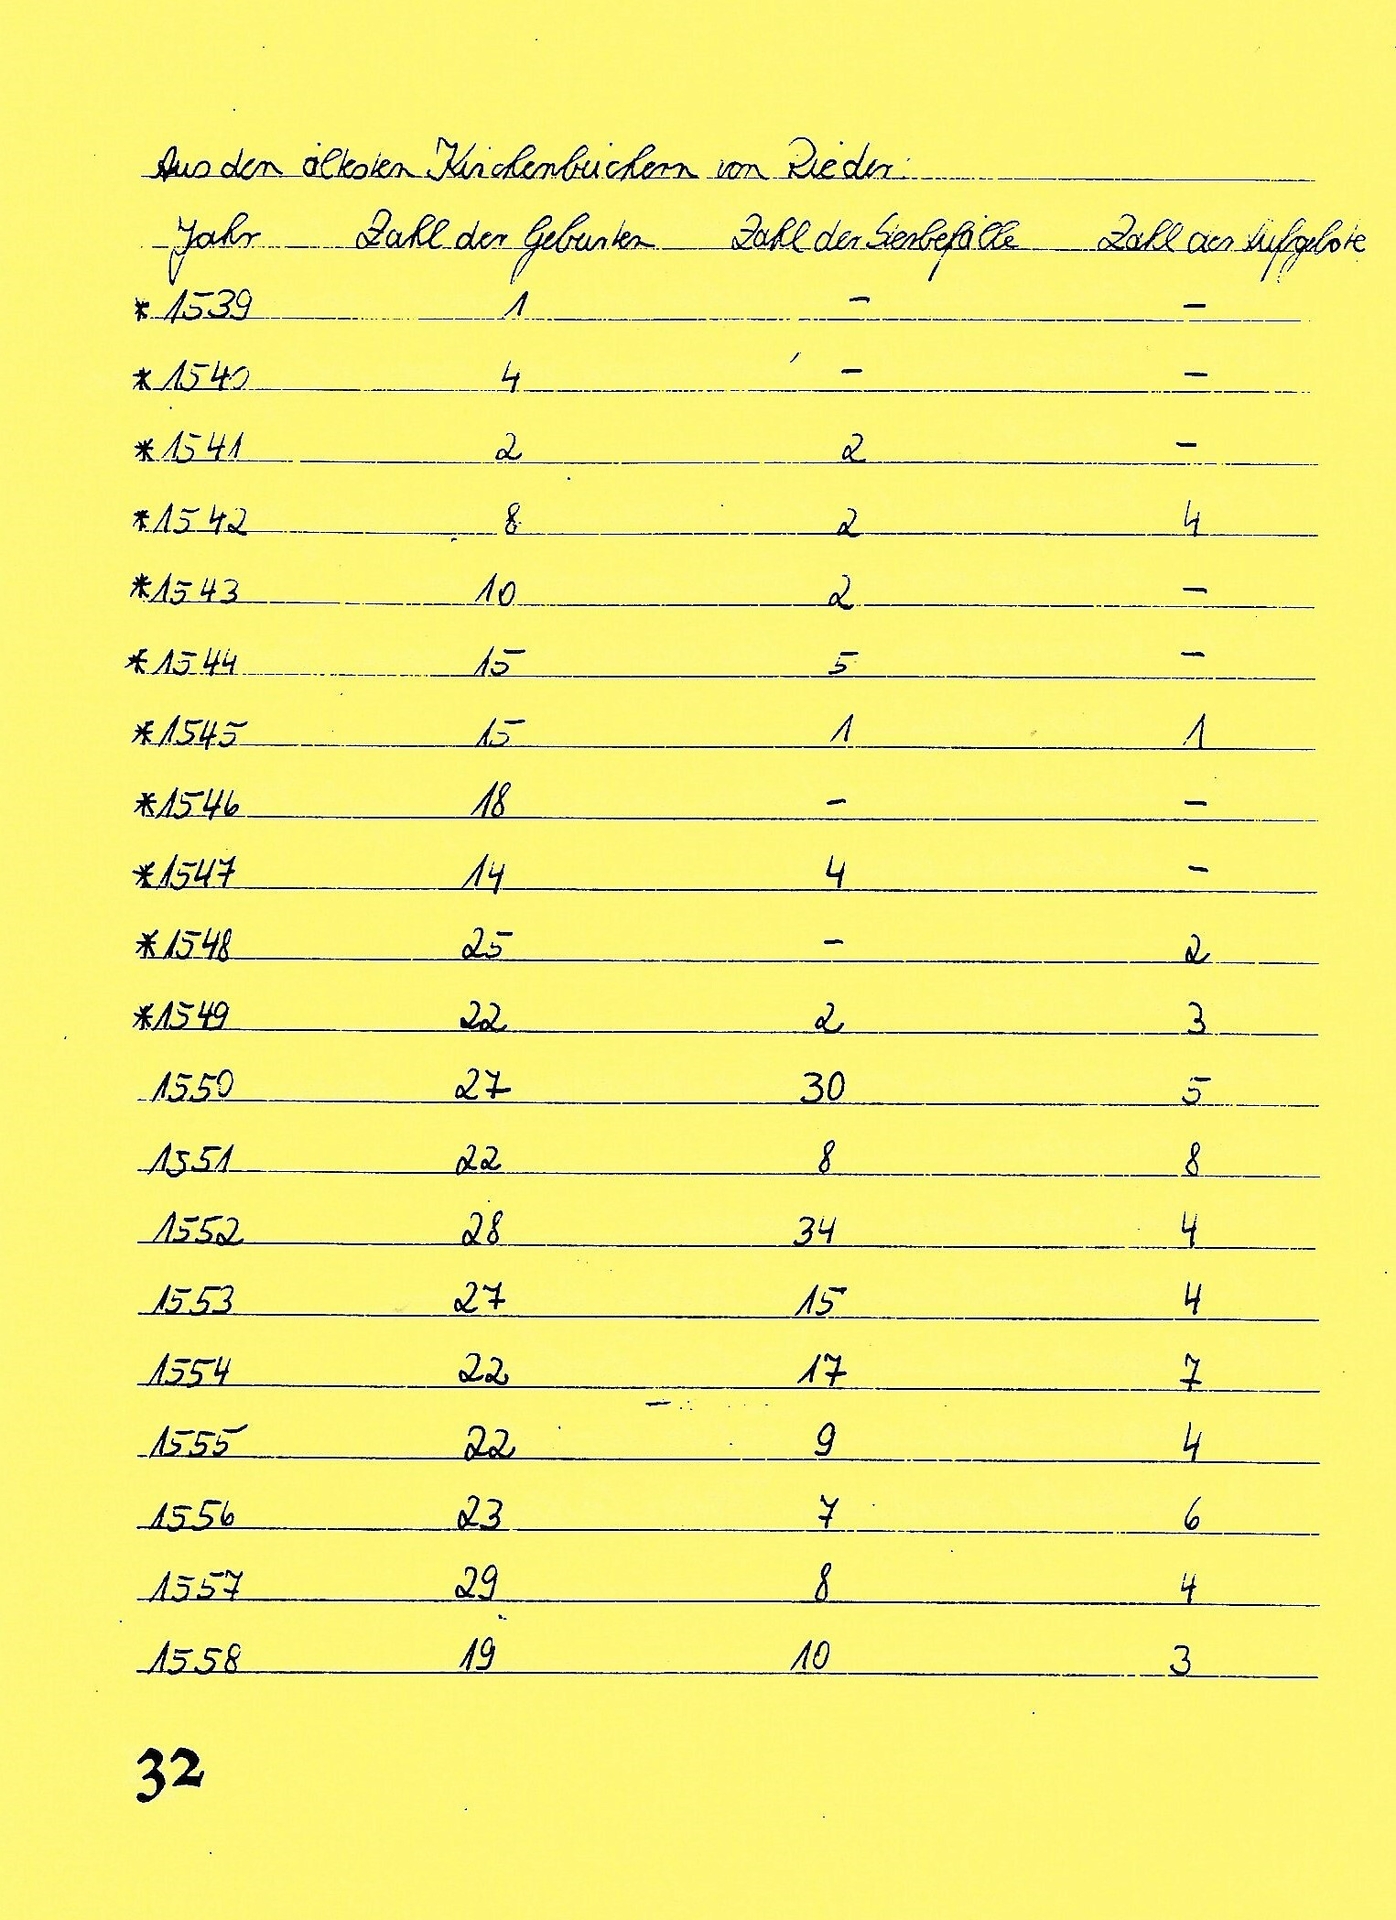 Aus den ältesten Kirchenbüchern von Rieder:
Jahr Zahl der Geburten Zahl der Sterbefälle Zahl der Aufgebote
* 1539 1 - -
* 1540 4 - -
* 1541 2 2 -
* 1542 8 2 4
* 1543 10 2 -
* 1544 15 5 -
* 1545 15 1 1
* 1546 18 - -
* 1547 14 4 -
* 1548 25 - 2
* 1549 22 2 3
1550 27 30 5
1551 22 8 8
1552 28 34 4
1553 27 15 4
1554 22 17 7
1555 22 9 4
1556 23 7 6
1557 29 8 4
1558 19 10 3
32